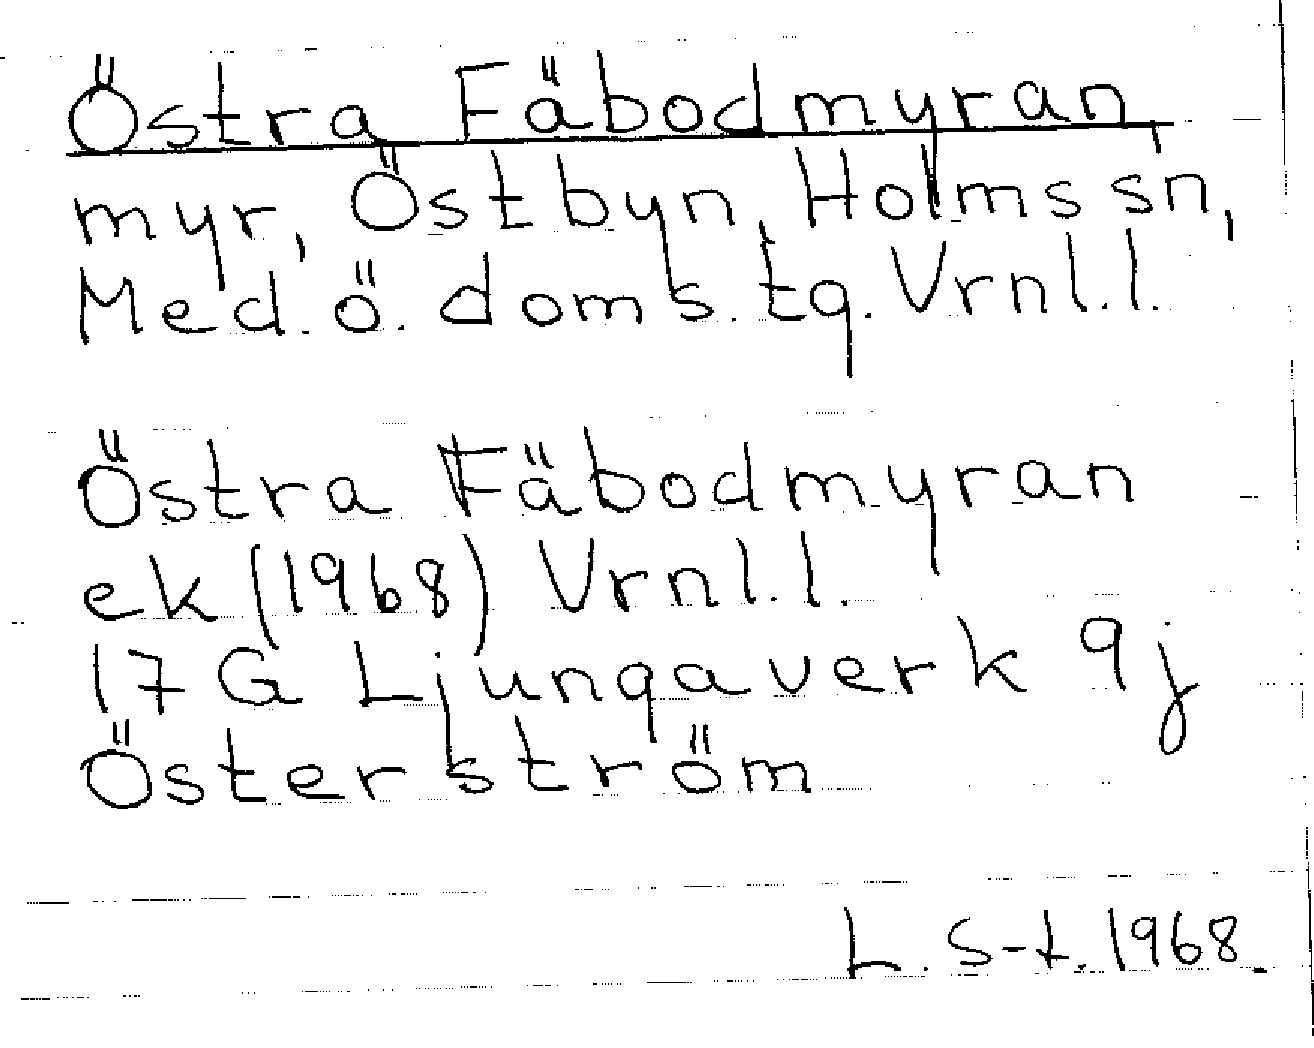 Östra Fäbodmyran,
myr, Östbyn, Holms sn,
Med. ö. doms. tg. Vrnl.l.
Östra Fäbodmyran
ek (1968) Vrnl.l.
17 G Ljungaverk 9j
Österström
L. S-t. 1968.